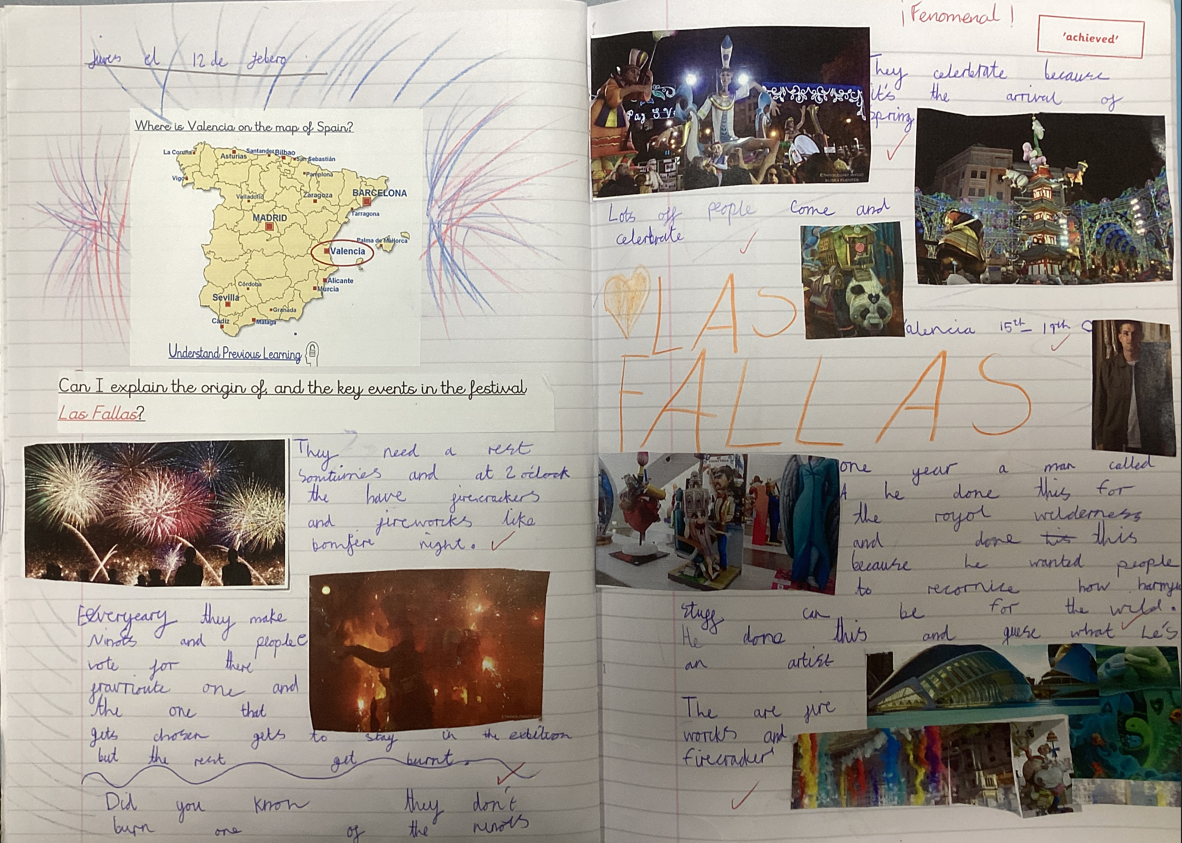 jueves el 12 de febero
Where is Valencia on the map of Spain?
La Coruña
Asturias
Santander
Bilbao
San Sebastián
Vigo
Pamplona
Valladolid
Zaragoza
BARCELONA
Tarragona
MADRID
Palma de Mallorca
Valencia
Alicante
Murcia
Córdoba
Sevilla
Granada
Cádiz
Málaga
Understand Previous Learning
Can I explain the origin of, and the key events in the festival
Las Fallas?
They need a rest
somtimes and at 2 o'clock
the have firecrackers
and fireworcks like
bomfire night.
Everyeary they make
Ninots and people
vote for there
one and
the one that
gets chosen gets to stay in the exbition
but the rest get burnt.
Did you know they don't
burn one of the ninots
¡Fenomenal!
'achieved'
They celerbtrate because
it's the arrival of
spring
Lots off people come and
celerbrate
LAS
FALLAS
Valencia 15th - 19th
one year a man called
he done this for
the royol wilderness
and done this
because he wanted people
to recornize how
stugg can be for the wild.
He done this and guese what he's
an artist
The are fire
worcks and
firecracker